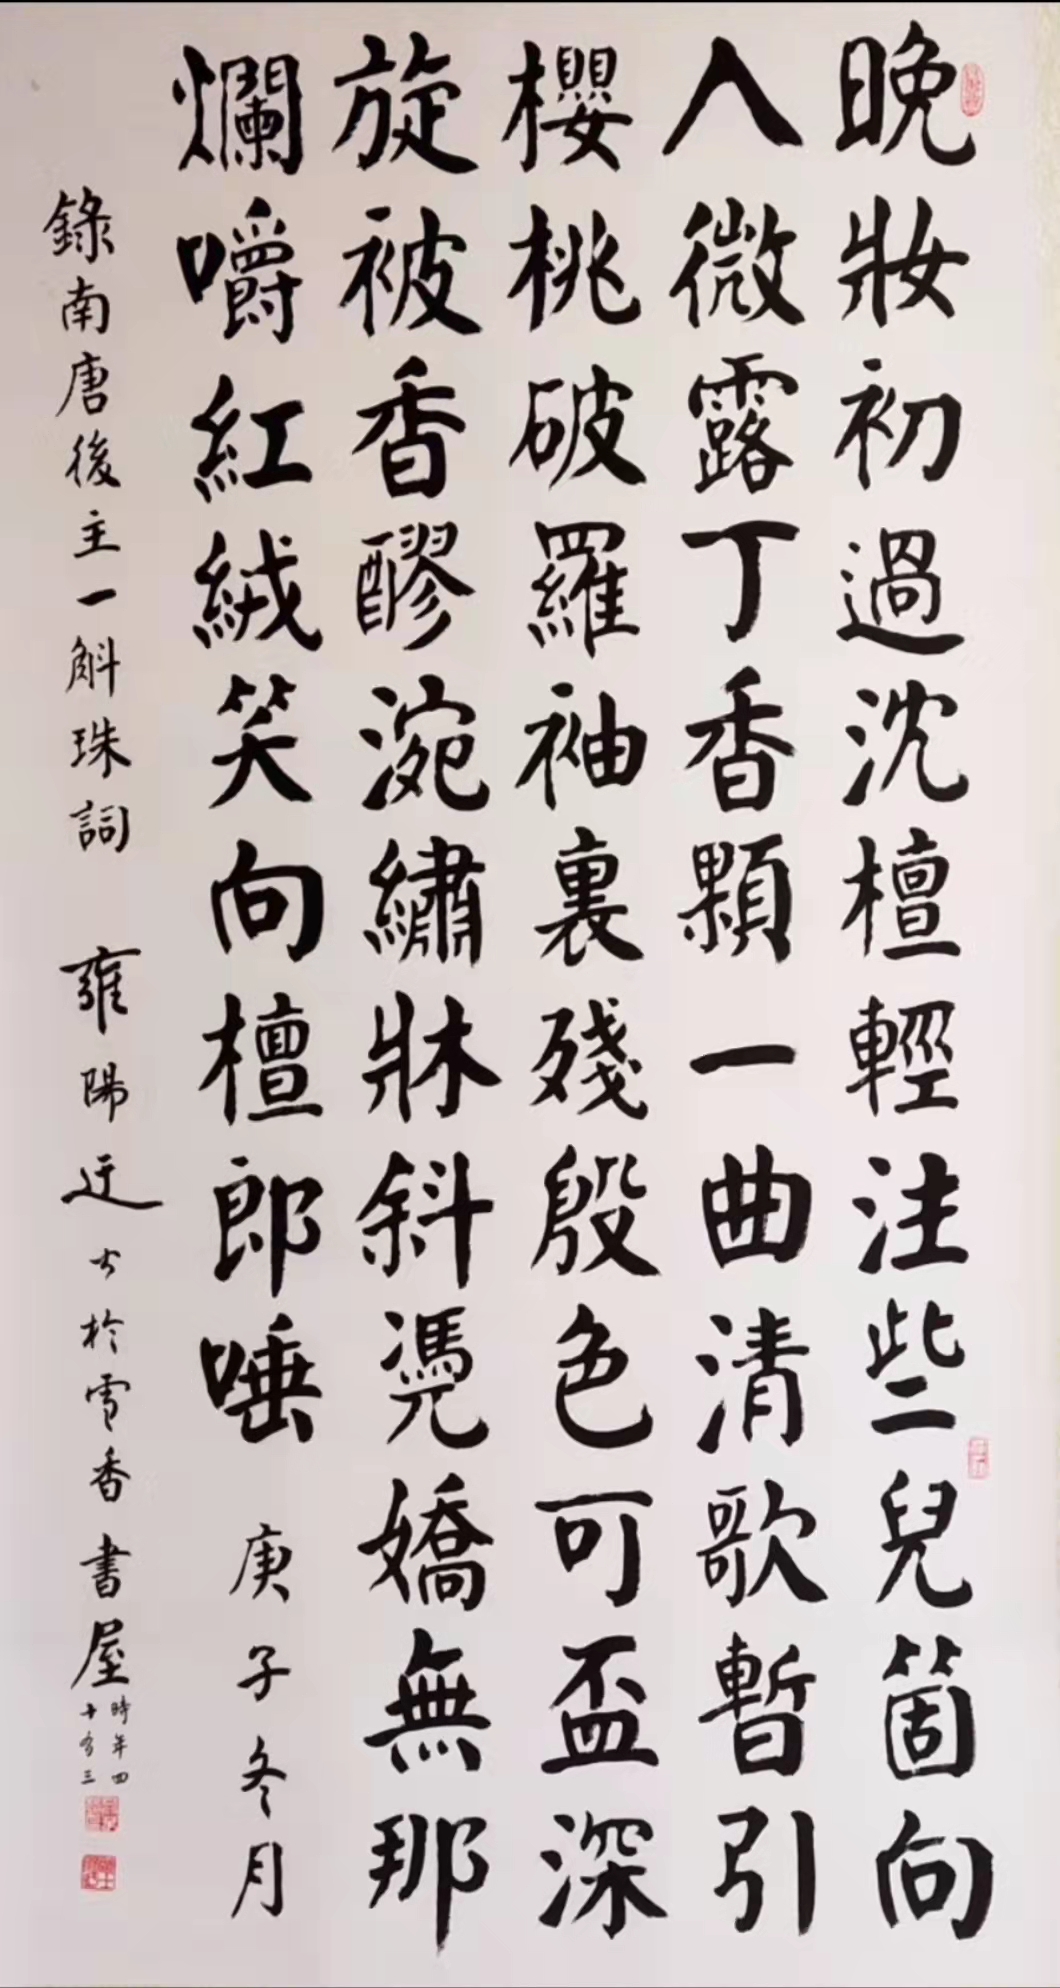 晚妝初過沈檀輕注些兒箇向
人微露丁香顆一曲清歌暫引
櫻桃破羅袖裏殘殷色可盃深
旋被香醪涴繡牀斜凭嬌無那
爛嚼紅絨笑向檀郎唾
庚子冬月
錄南唐後主一斛珠詞
雍陽
於雪香書屋
時年四
十有三